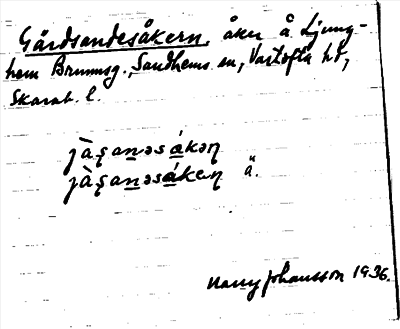 Gårdsandesåkern, åker å Ljung-
hem Brunnsg., Sandhems sn, Vartofta hd,
Skarab. l.
jàʂanəsákəɳ
jàʂanəsákeɳ ä.
Harry Johansson 1936.